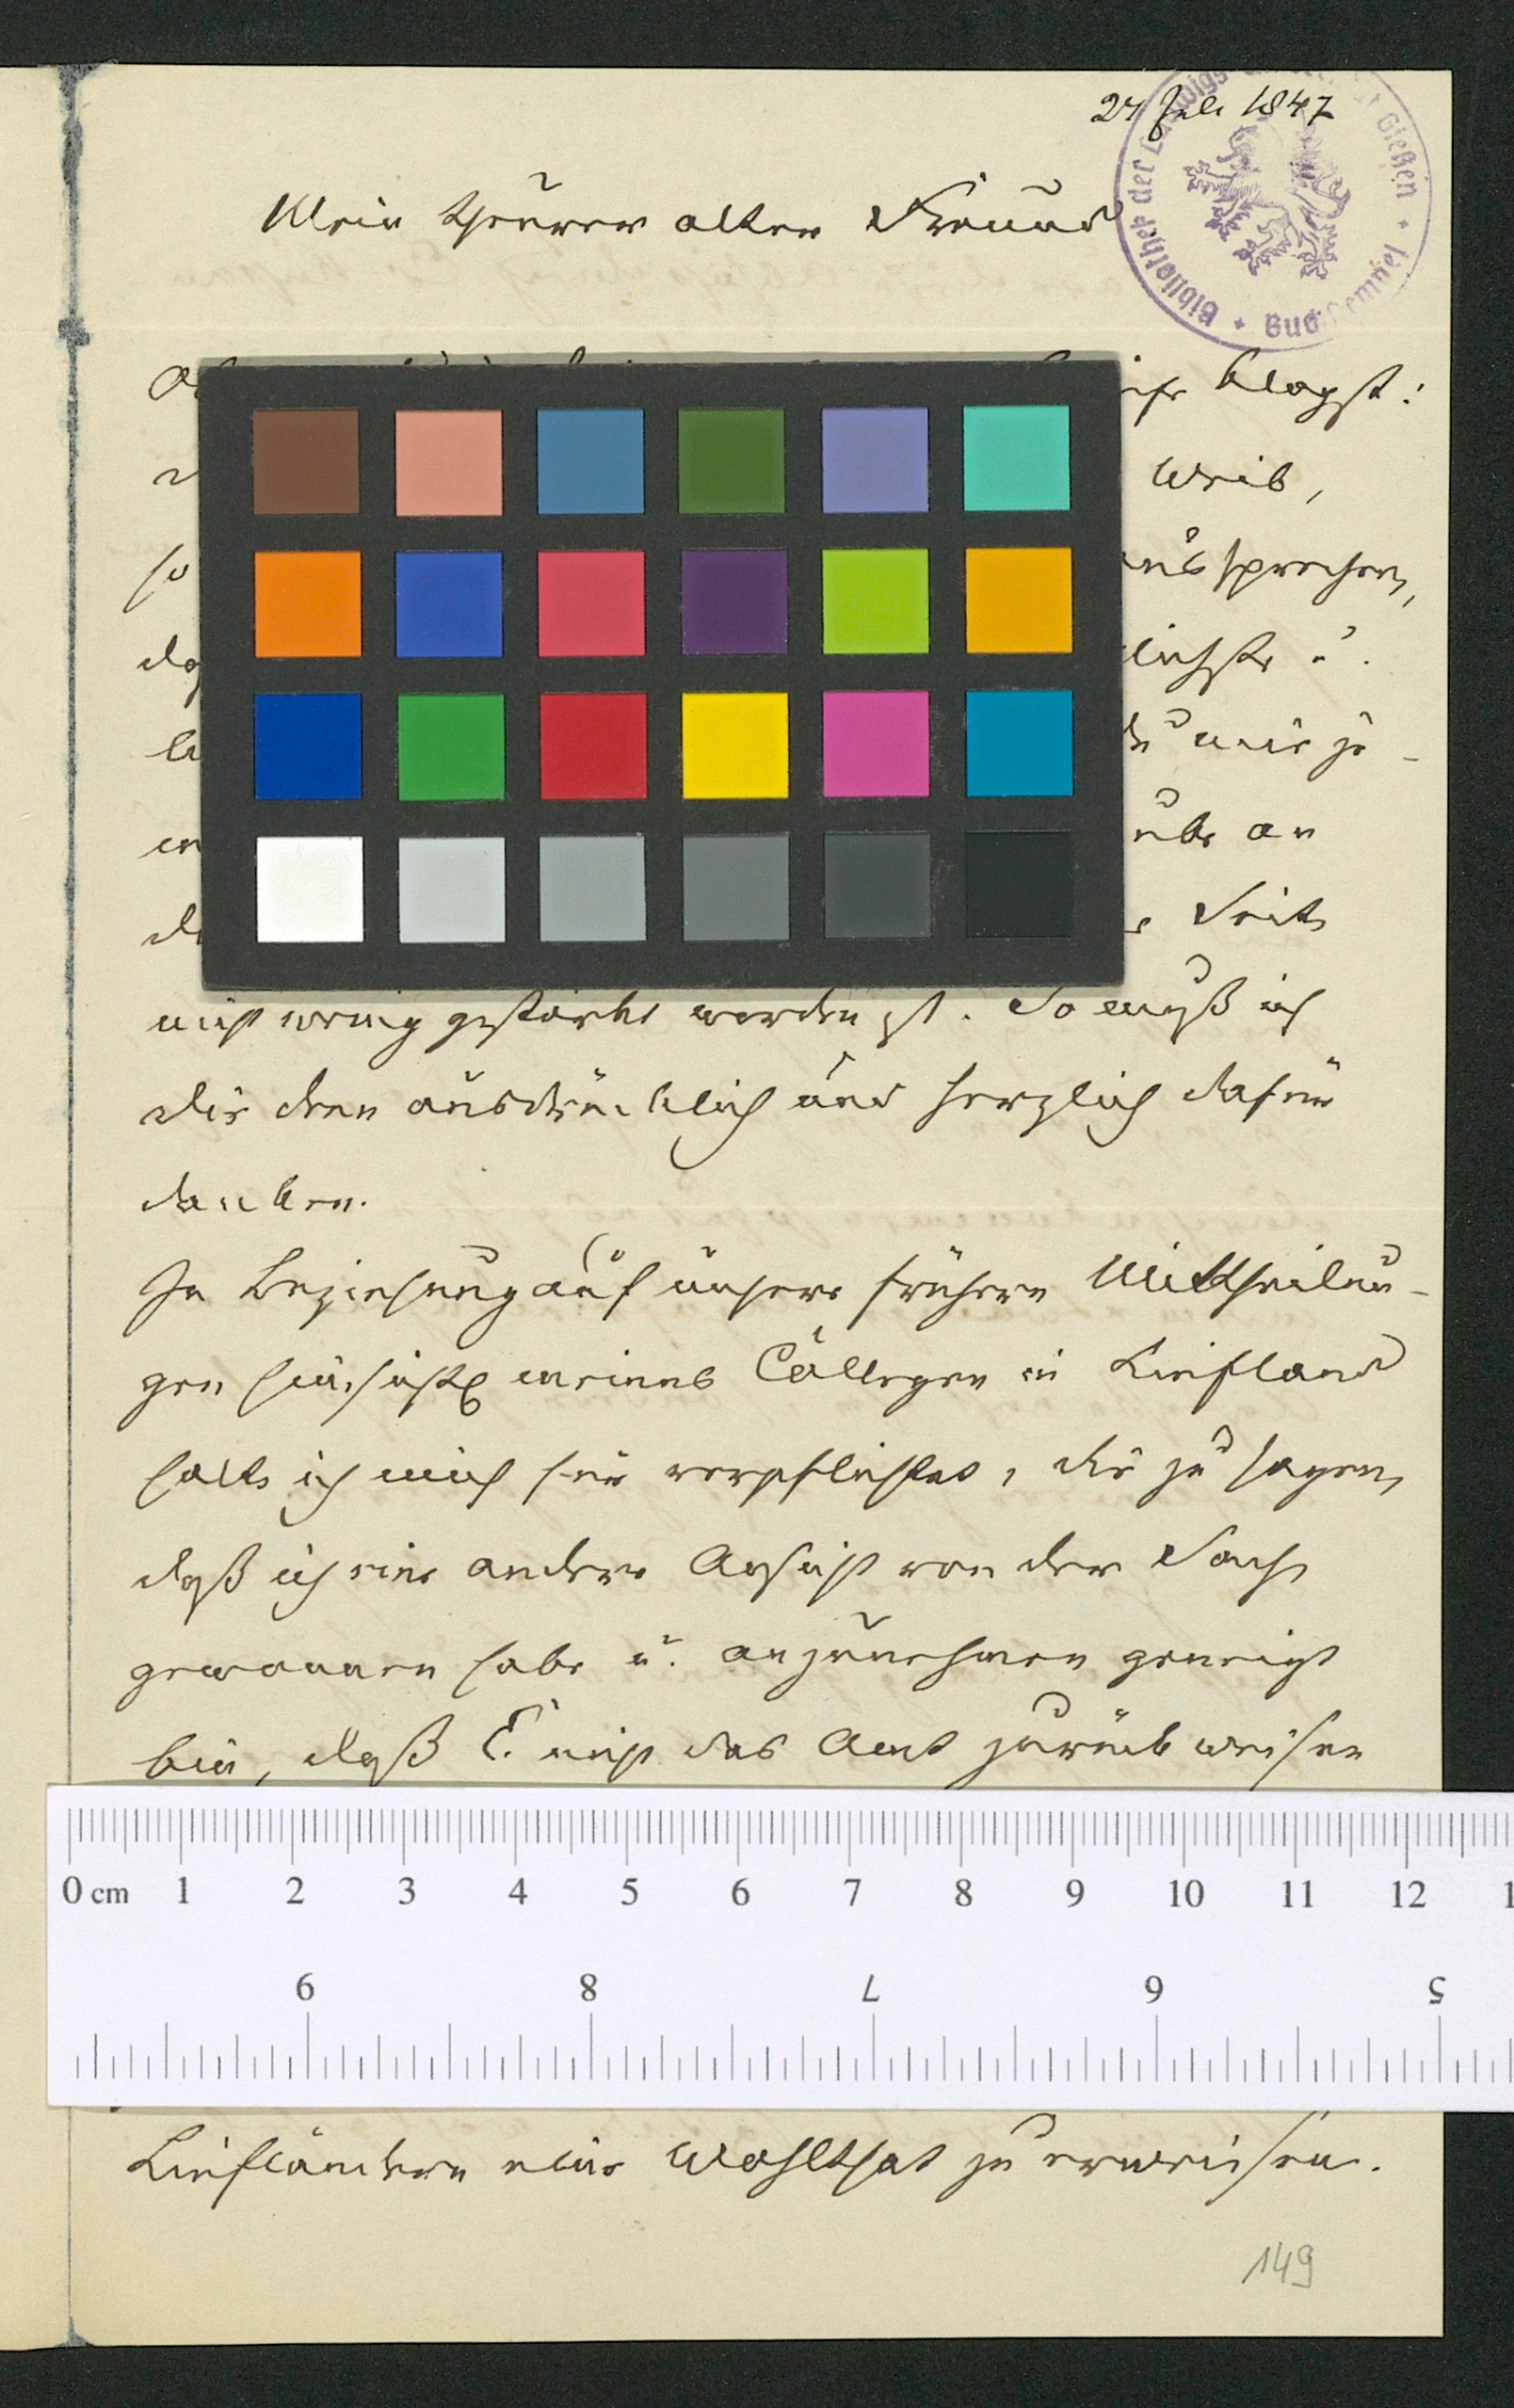 24 Juli 1847
Bibliothek der Ludwigs Gießen Bud
Mein theurer alter Freund
klagst:
Weib,
so
aussprechen,
u.
mir zu-
an
Seite
nicht wenig gestärkt worden ist. So muß ich
dir denn ausdrücklich und herzlich dafür
danken.
In Beziehung auf unsere frühern Mittheilun-
gen hinsichtl. meines Collegen in Liefland
halte ich mich für verpflichtet, dir zu sagen,
daß ich eine andere Ansicht von der Sache
gewonnen habe u. anzunehmen geneigt
bin, daß E. nicht das Amt zurückweisen
0 cm 1 2 3 4 5 6 7 8 9 10 11 12 1
9 8 7 6 5
Liefländern eine Wohlthat zu erweisen.
149